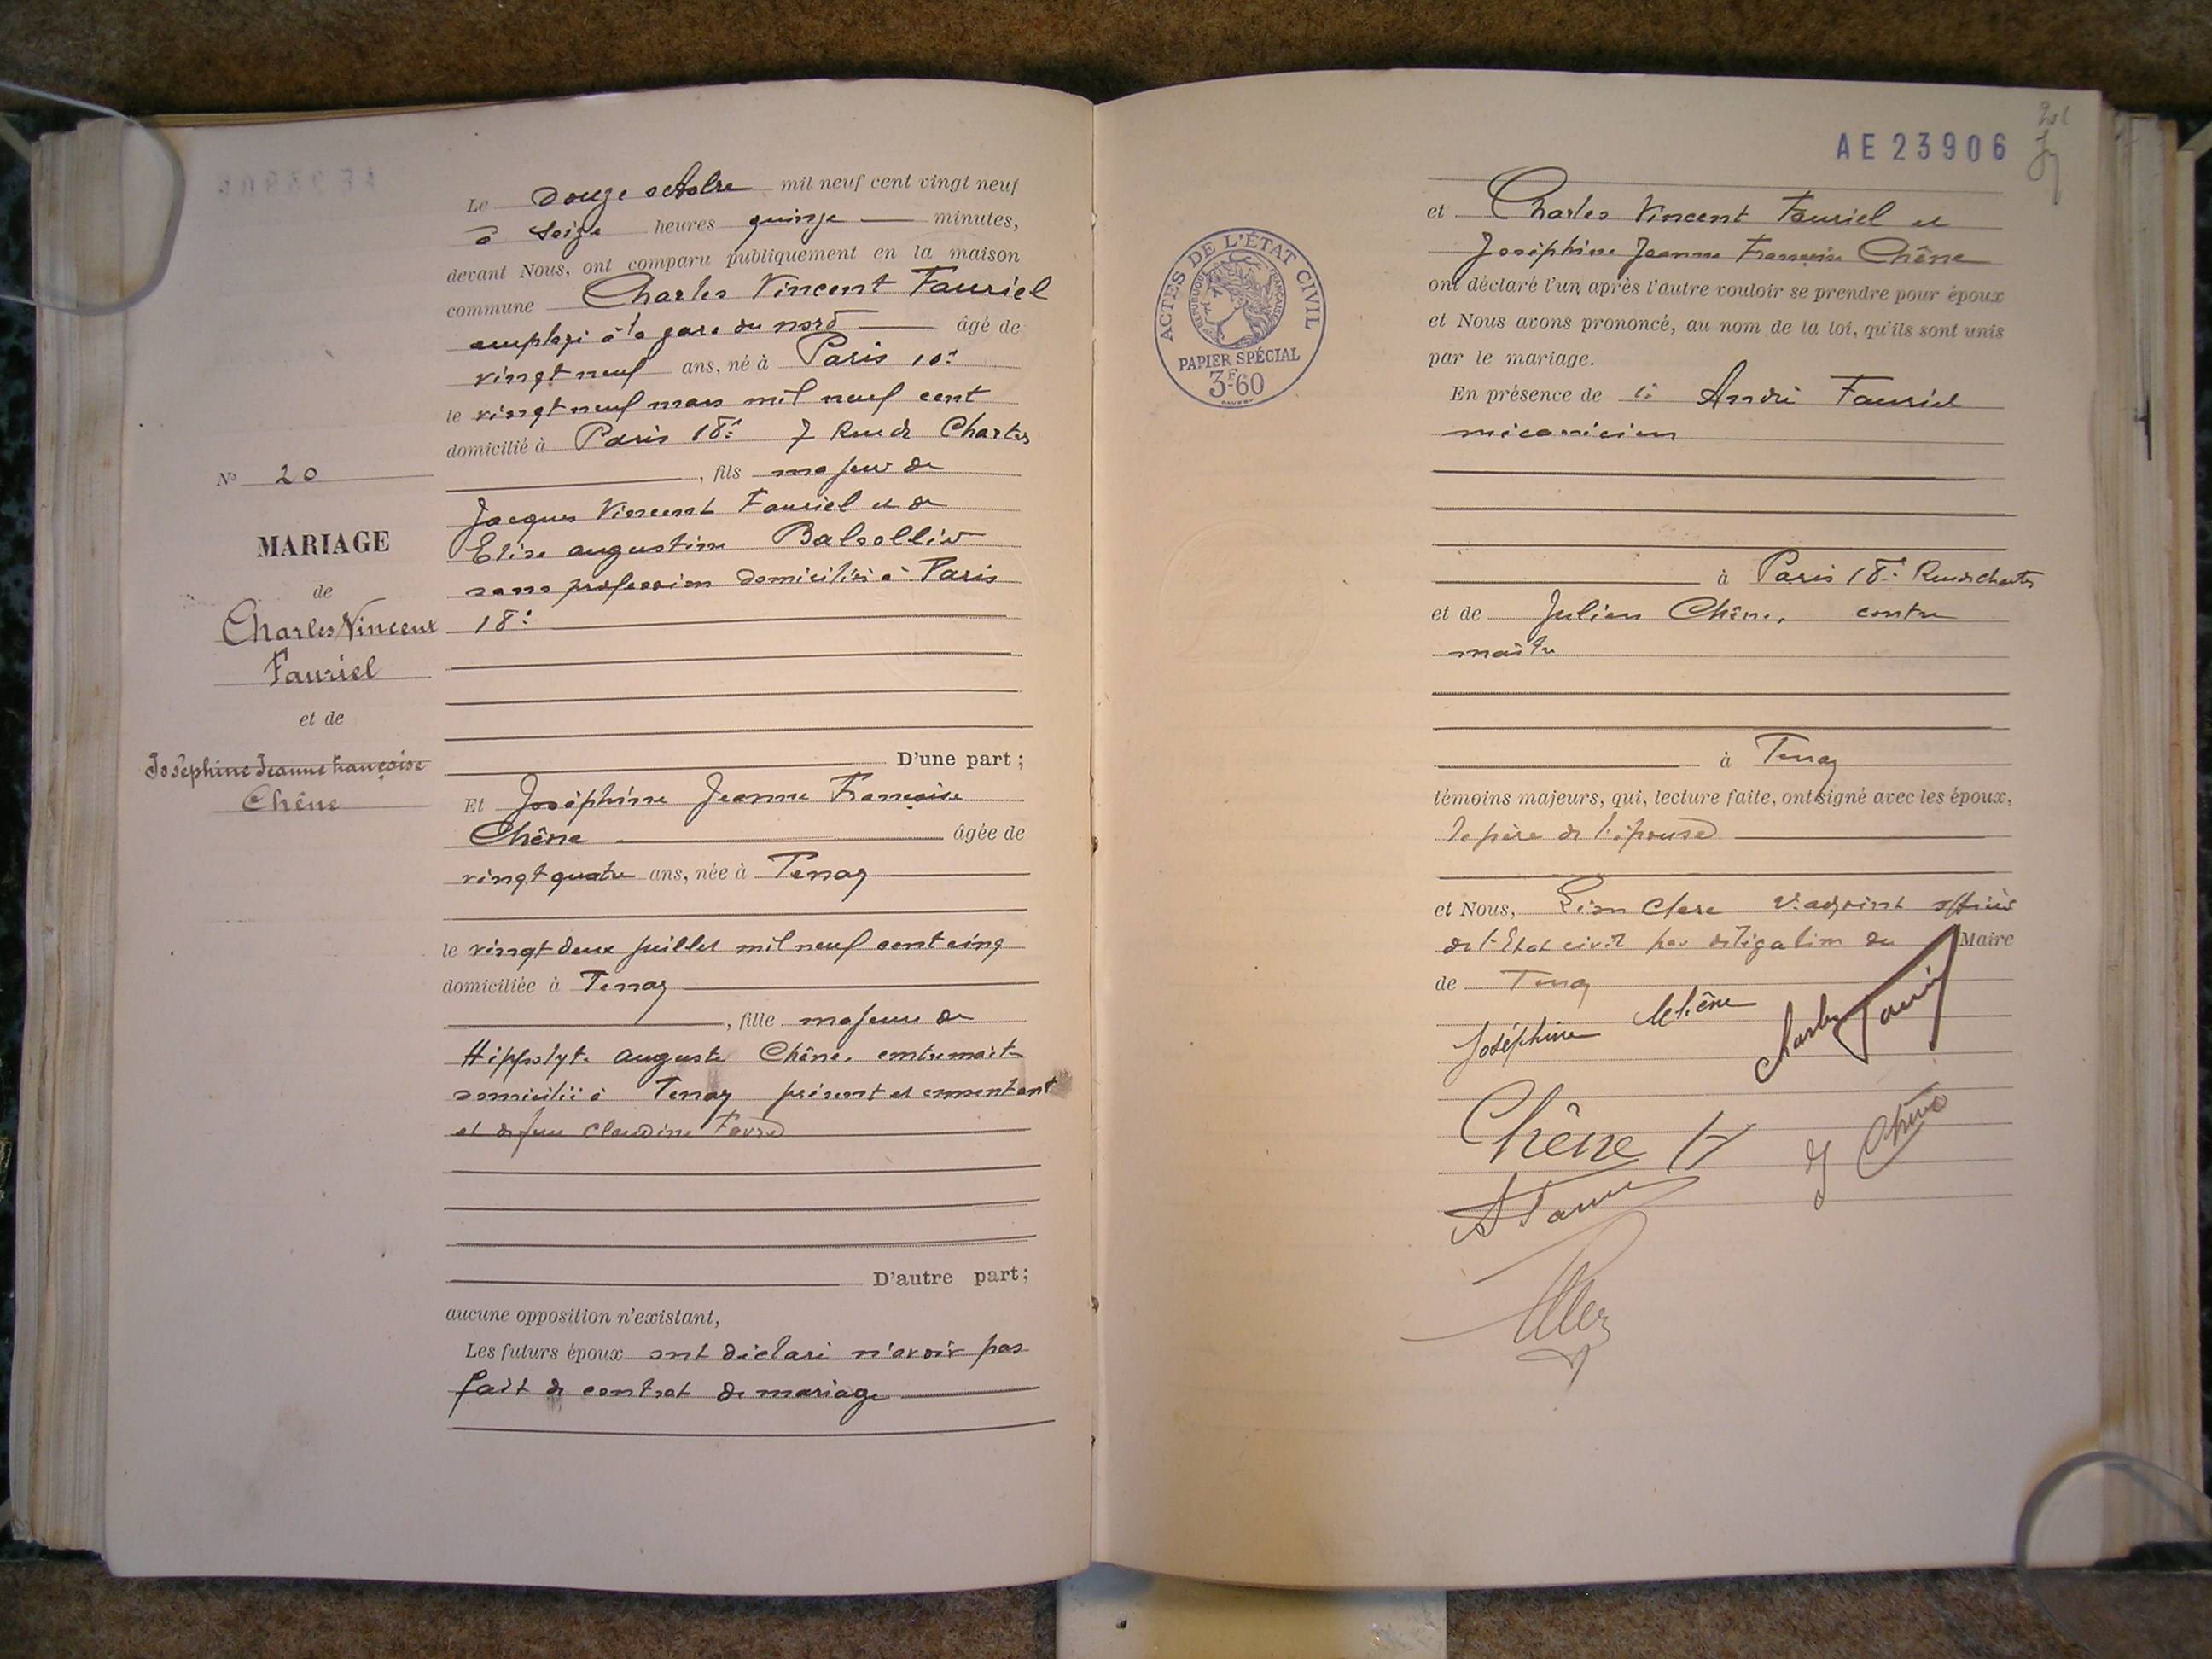 Le douze octobre mil neuf cent vingt neuf
à seize heures quinze minutes,
devant Nous, ont comparu publiquement en la maison
commune Charles Vincent Fauriel
employé à la gare du nord âgé de
vingt neuf ans, né à Paris 10e
le vingt neuf mars mil neuf cent
domicilié à Paris 18e 7 Rue de Chartres
, fils majeur de
Jacques Vincent Fauriel et de
Elise augustine
sans profession domiciliés à Paris
18e
D'une part ;
Et Joséphine Jeanne Françoise
Chêne âgée de
vingt quatre ans, née à Tenay
le vingt deux juillet mil neuf cent cinq
domiciliée à Tenay
, fille majeure de
Hippolyte auguste Chêne, contremaitre
domicilié à Tenay présent et consentant
et de feue Claudine Favre
D'autre part ;
aucune opposition n'existant,
Les futurs époux ont déclaré n'avoir pas
fait de contrat de mariage
No 20
MARIAGE
de
Charles Vincent
Fauriel
et de
Joséphine Jeanne Françoise
Chêne
AE 23906
ACTES DE L'ÉTAT CIVIL
RÉPUBLIQUE FRANÇAISE
PAPIER SPÉCIAL
3F60
et Charles Vincent Fauriel et
Joséphine Jeanne Françoise Chêne
ont déclaré l'un après l'autre vouloir se prendre pour époux
et Nous avons prononcé, au nom de la loi, qu'ils sont unis
par le mariage.
En présence de André Fauriel
mécanicien
à Paris 18e Rue de Chartres
et de Julien Chêne, contre
maître
à Tenay
témoins majeurs, qui, lecture faite, ont signé avec les époux,
le père de l'épouse
et Nous, adjoint officier
de l'Etat civil par délégation du Maire
de Tenay
Joséphine Chêne
Charles Fauriel
Chêne H
J Chêne